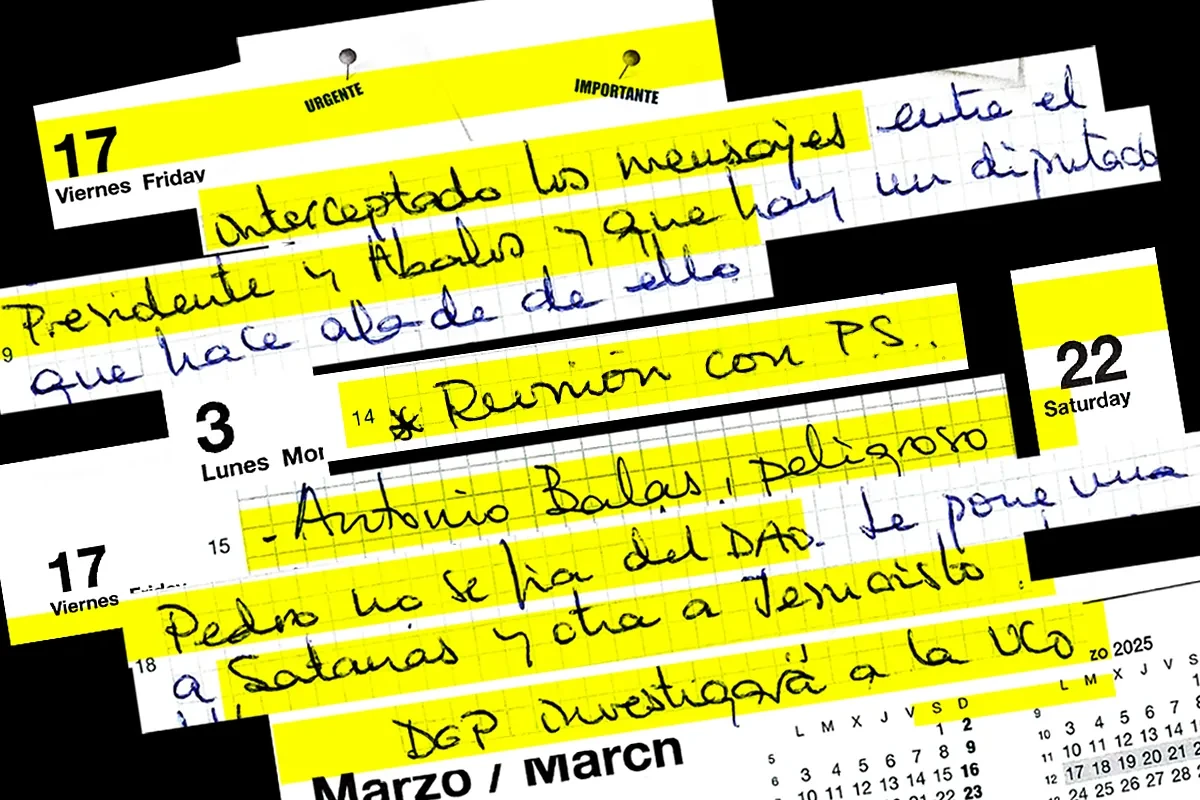 URGENTE
IMPORTANTE
17
Viernes Friday
interceptado los mensajes entre el
Presidente y Ábalos y que hay un diputado
que hace alarde de ello
14 * Reunión con P.S..
3
Lunes Mon
22
Saturday
- Antonio Balas, peligroso
15
17
Viernes Friday
Pedro no se fía del DAO. Le pone una
18
a Satanás y otra a Jesucristo.
DGP investigará a la UCO
Marzo / March
L M X J V S D
5 1 2
6 3 4 5 6 7 8 9
10 11 12 13 14 15 16
22 23
zo 2025
L M X J V S
9 1
10 3 4 5 6 7 8
11 10 11 12 13 14
12 17 18 19 20 21 2
24 25 26 27 28